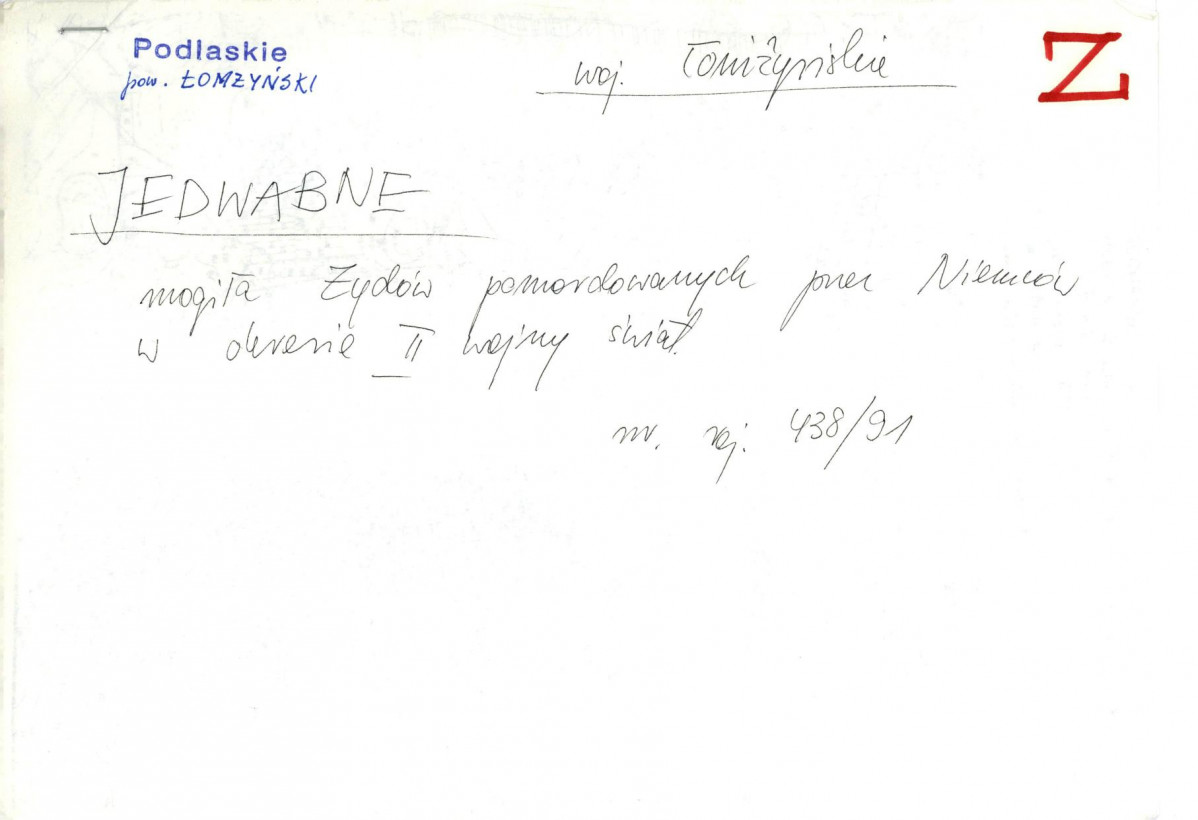 Podlaskie
pow. ŁOMŻYŃSKI
woj. Łomżyńskie
Z
JEDWABNE
mogiła Żydów pomordowanych przez Niemców
w okresie II wojny świat.
nr. rej. 438/91